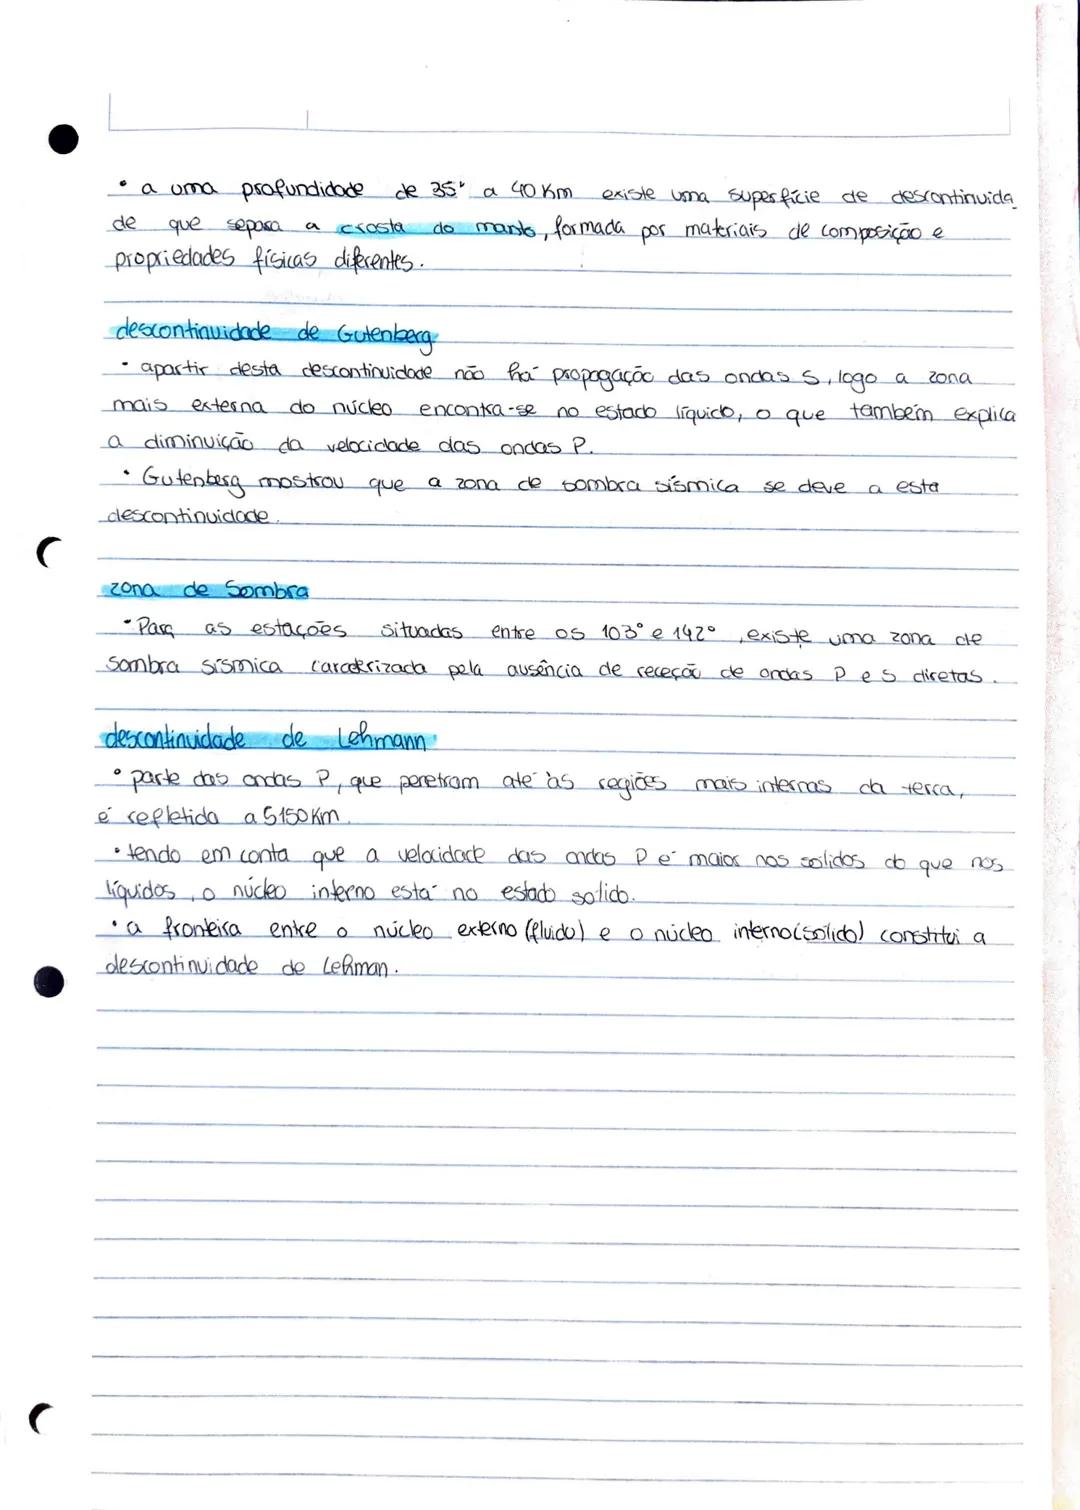 • a uma profundidade de 35 a 40 Km existe uma superfície de descontinuida
de que separa a crosta do manto, formada por materiais de composição e
propriedades físicas diferentes.
descontinuidade de Gutenberg
• apartir desta descontinuidade não há propagação das ondas S, logo a zona
mais externa do núcleo encontra-se no estado líquido, o que também explica
a diminuição da velocidade das ondas P.
• Gutenberg mostrou que a zona de sombra sísmica se deve a esta
descontinuidade.
zona de Sombra
• Para as estações situadas entre os 103° e 142°, existe uma zona de
sombra sísmica caracterizada pela ausência de receção de ondas P e S diretas.
descontinuidade de Lehmann
• parte das ondas P, que penetram até às regiões mais internas da terra,
é refletida a 5150 Km.
• tendo em conta que a velocidade das ondas P é maior nos solidos do que nos
líquidos, o núcleo interno está no estado solido.
• a fronteira entre o núcleo externo (fluido) e o núcleo interno (solido) constitui a
descontinuidade de Lehman.